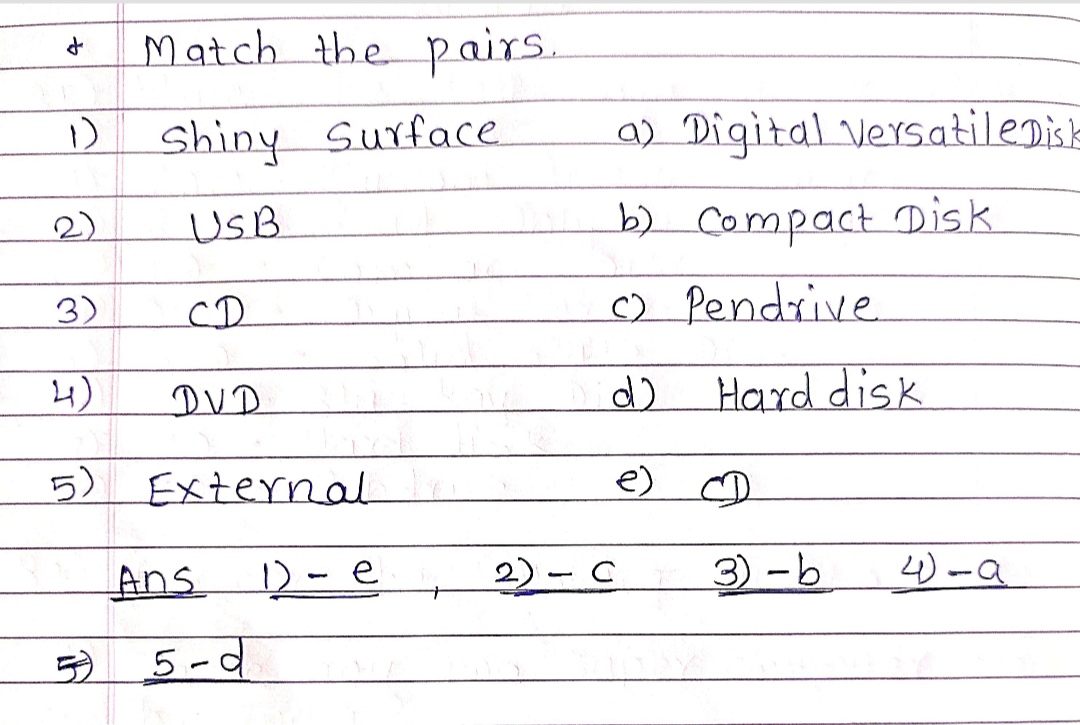 * Match the pairs.
1) Shiny Surface a) Digital Versatile Disk
2) USB b) Compact Disk
3) CD c) Pendrive
4) DVD d) Hard disk
5) External e) CD
Ans 1) - e , 2) - c 3) - b 4) - a
5) 5 - d